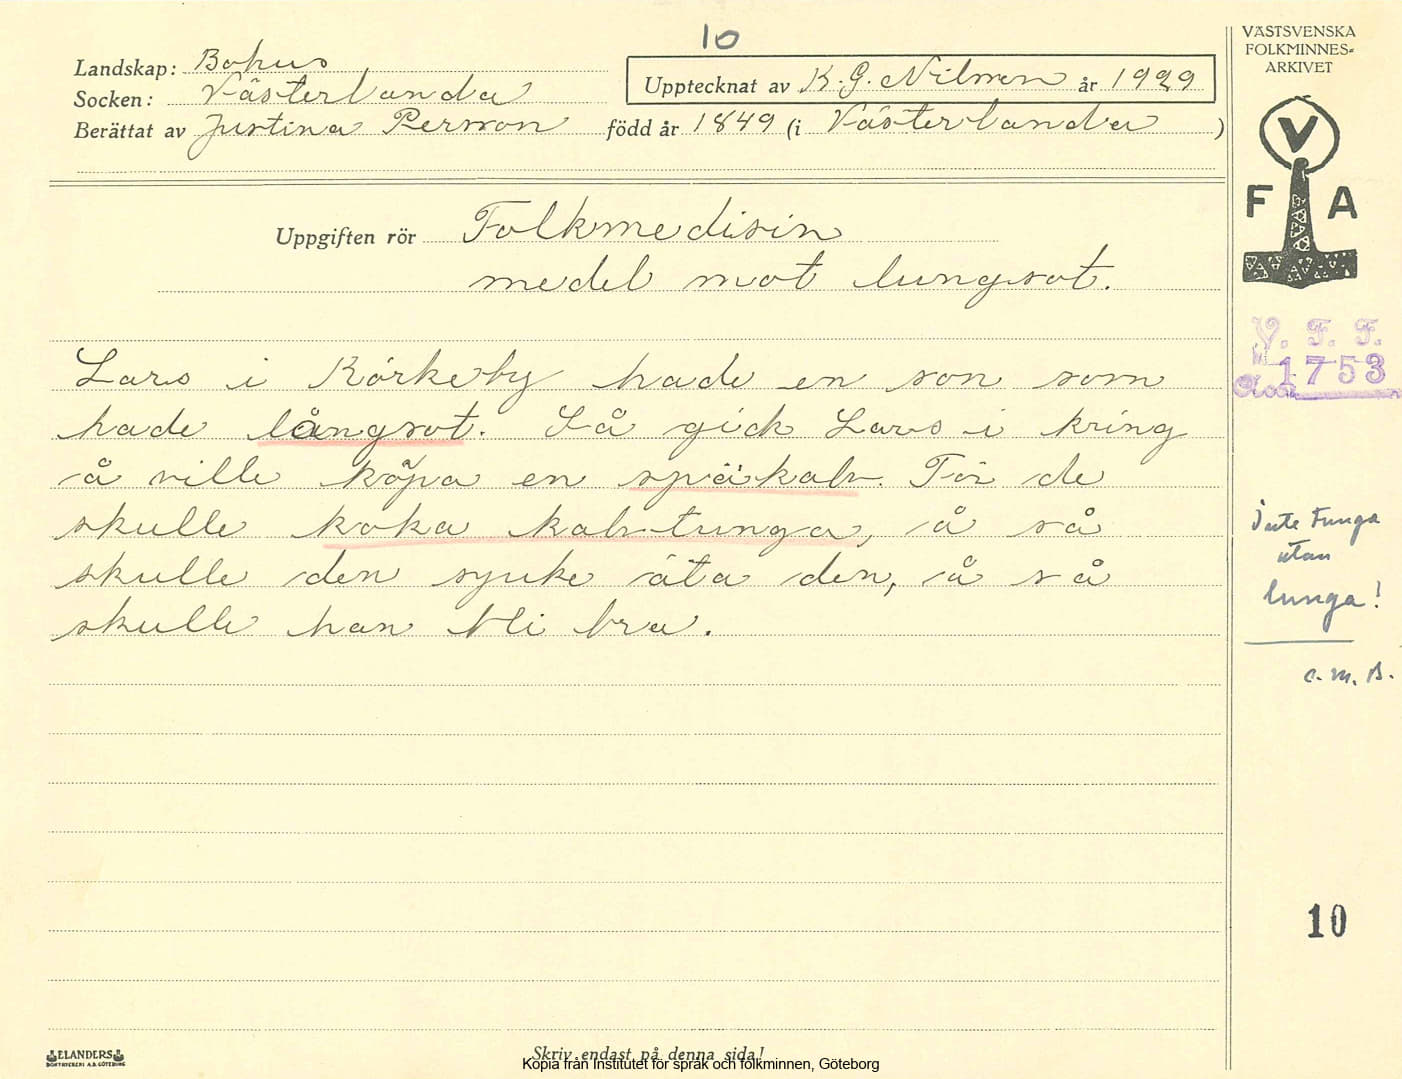 10
Landskap: Bohus
Socken: Västerlanda
Berättat av Justina Persson född år 1849 (i Västerlanda)
Upptecknat av K. G. Nilsson år 1929
Uppgiften rör Folkmedisin
medel mot lungsot.
Lars i Körkeby hade en son som
hade långsot. Så gick Lars i kring
å ville köpa en späkalv. För de
skulle koka kalv-tunga, å så
skulle den sjuke äta den, å så
skulle han bli bra.
VÄSTSVENSKA
FOLKMINNES-
ARKIVET
V
F A
V. F. F.
1753
Inte tunga
utan
lunga!
C. M. B.
10
ELANDERS
BOKTRYCKERI A.B. GÖTEBORG
Skriv endast på denna sida!
Kopia från Institutet för språk och folkminnen, Göteborg